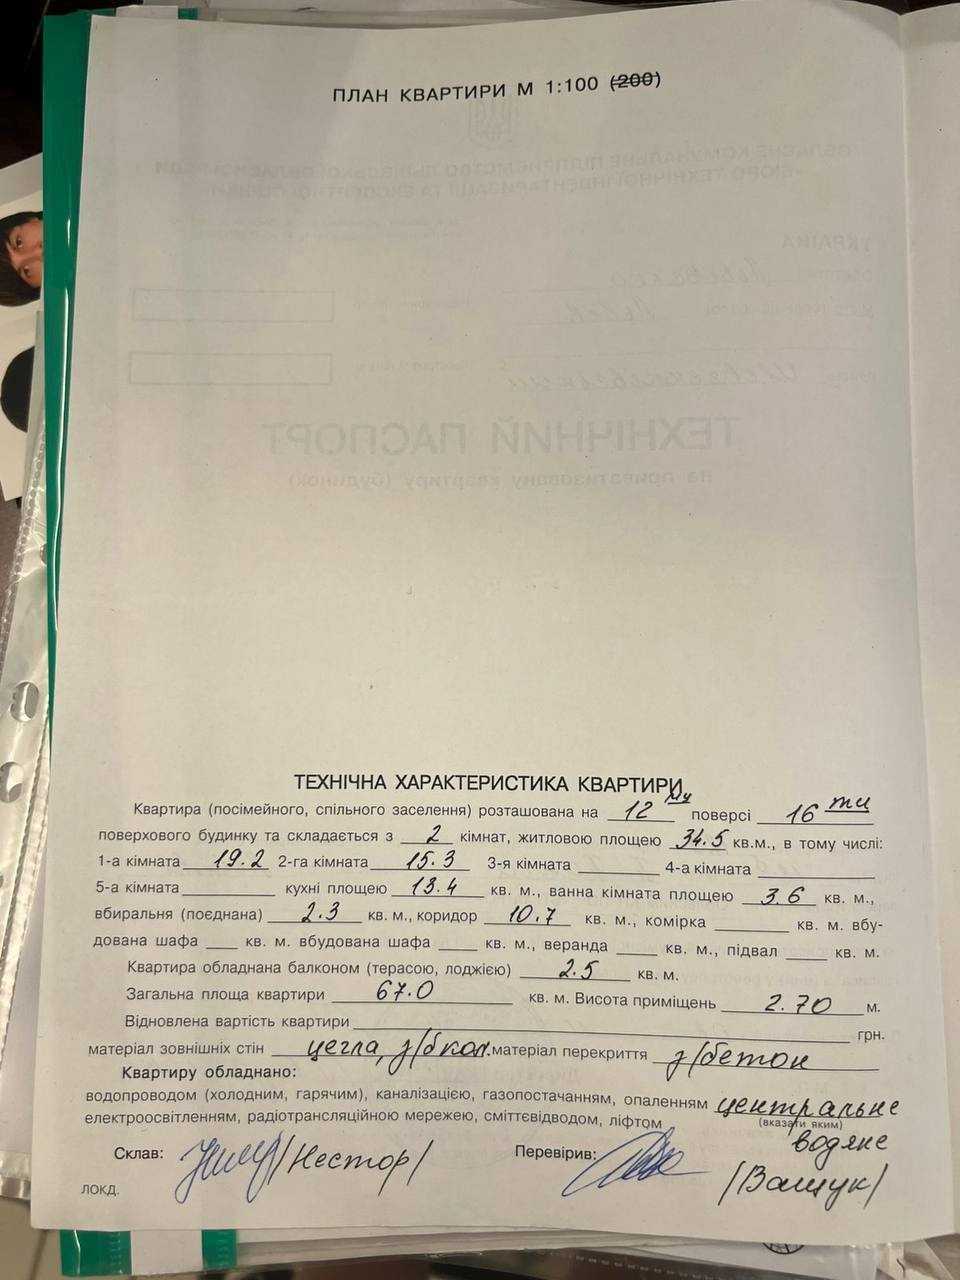 ПЛАН КВАРТИРИ М 1:100 (200)
ТЕХНІЧНИЙ ПАСПОРТ
на приватизовану квартиру (будинок)
ТЕХНІЧНА ХАРАКТЕРИСТИКА КВАРТИРИ
Квартира (посімейного, спільного заселення) розташована на 12 му поверсі 16 ти
поверхового будинку та складається з 2 кімнат, житловою площею 34.5 кв.м., в тому числі:
1-а кімната 19.2 2-га кімната 15.3 3-я кімната 4-а кімната
5-а кімната кухні площею 13.4 кв. м., ванна кімната площею 3.6 кв. м.,
вбиральня (поєднана) 2.3 кв. м., коридор 10.7 кв. м., комірка кв. м. вбу-
дована шафа кв. м. вбудована шафа кв. м., веранда кв. м., підвал кв. м.
Квартира обладнана балконом (терасою, лоджією) 2.5 кв. м.
Загальна площа квартири 67.0 кв. м. Висота приміщень 2.70 м.
Відновлена вартість квартири грн.
матеріал зовнішніх стін цегла, з/б кол. матеріал перекриття з/бетон
Квартиру обладнано:
водопроводом (холодним, гарячим), каналізацією, газопостачанням, опаленням центральне
електроосвітленням, радіотрансляційною мережею, сміттєвідводом, ліфтом (вказати яким)
водяне
Склав: /Нестор/ Перевірив: /Ващук/
ЛОКД.